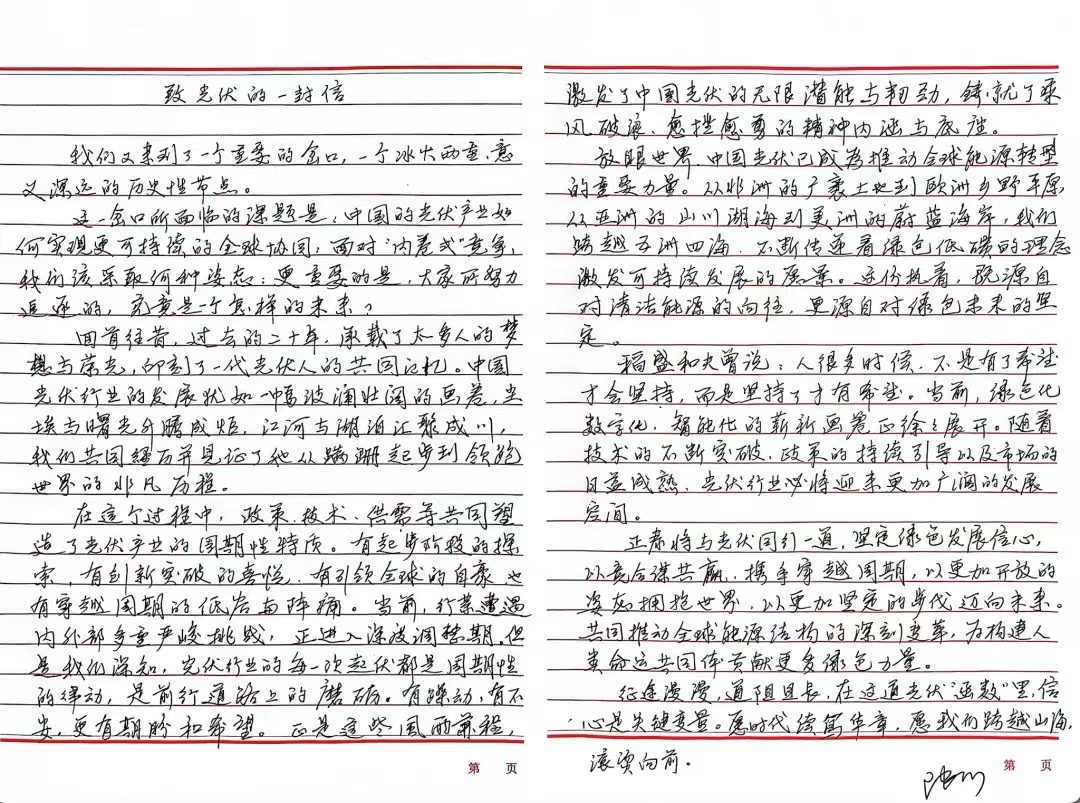 致光伏的一封信
我们又来到了一个重要的岔口，一个冰火两重、意
义深远的历史性节点。
这一岔口所面临的课题是：中国的光伏产业如
何实现更可持续的全球协同；面对“内卷式”竞争，
我们该采取何种姿态；更重要的是，大家所努力
追逐的，究竟是一个怎样的未来？
回首往昔，过去的二十年，承载了太多人的梦
想与荣光，印刻了一代光伏人的共同记忆。中国
光伏行业的发展犹如一幅波澜壮阔的画卷，尘
埃与曙光升腾成炬，江河与湖泊汇聚成川，
我们共同经历并见证了他从蹒跚起步到领跑
世界的非凡历程。
在这个过程中，政策、技术、供需等共同塑
造了光伏产业的周期性特质。有起步阶段的探
索，有创新突破的喜悦，有引领全球的自豪，也
有穿越周期的低谷与阵痛。当前，行业遭遇
内外部多重严峻挑战，正进入深波调整期。但
是我们深知，光伏行业的每一次起伏都是周期性
的律动，是前行道路上的磨砺。有躁动，有不
安，更有期盼和希望。正是这些风雨兼程，
激发了中国光伏的无限潜能与韧劲，铸就了乘
风破浪、愈挫愈勇的精神内涵与底座。
放眼世界，中国光伏已成为推动全球能源转型
的重要力量。从非洲的广袤土地到欧洲乡野平原，
从亚洲的山川湖海到美洲的蔚蓝海岸，我们
跨越五洲四海，不断传递着绿色低碳的理念
激发可持续发展的愿景。这份执着，既源自
对清洁能源的向往，更源自对绿色未来的坚
定。
稻盛和夫曾说：人很多时候，不是有了希望
才会坚持，而是坚持了才有希望。当前，绿色化
数字化、智能化的崭新画卷正徐徐展开。随着
技术的不断突破，政策的持续引导以及市场的
日益成熟，光伏行业必将迎来更加广阔的发展
空间。
正泰将与光伏同引一道，坚定绿色发展信心，
以竞合谋共赢，携手穿越周期，以更加开放的
姿态拥抱世界，以更加坚定的步伐迈向未来。
共同推动全球能源结构的深刻变革，为构建人
类命运共同体贡献更多绿色力量。
征途漫漫，道阻且长，在这道光伏“函数”里，信
心是关键变量。愿时代续写华章，愿我们跨越山海，
滚烫向前。
第 页
第 页